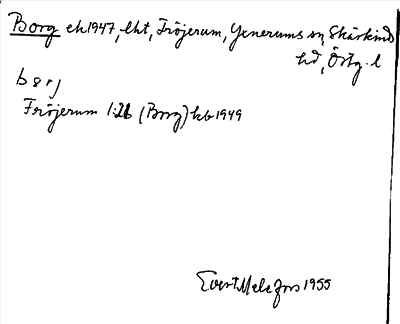 Borg ek 1947, lht, Fröjerum, Yxnerums sn, Skärkinds
hd, Östg. l
barj
Fröjerum 1:26 (Borg) kb 1949
Evert Melefors 1955